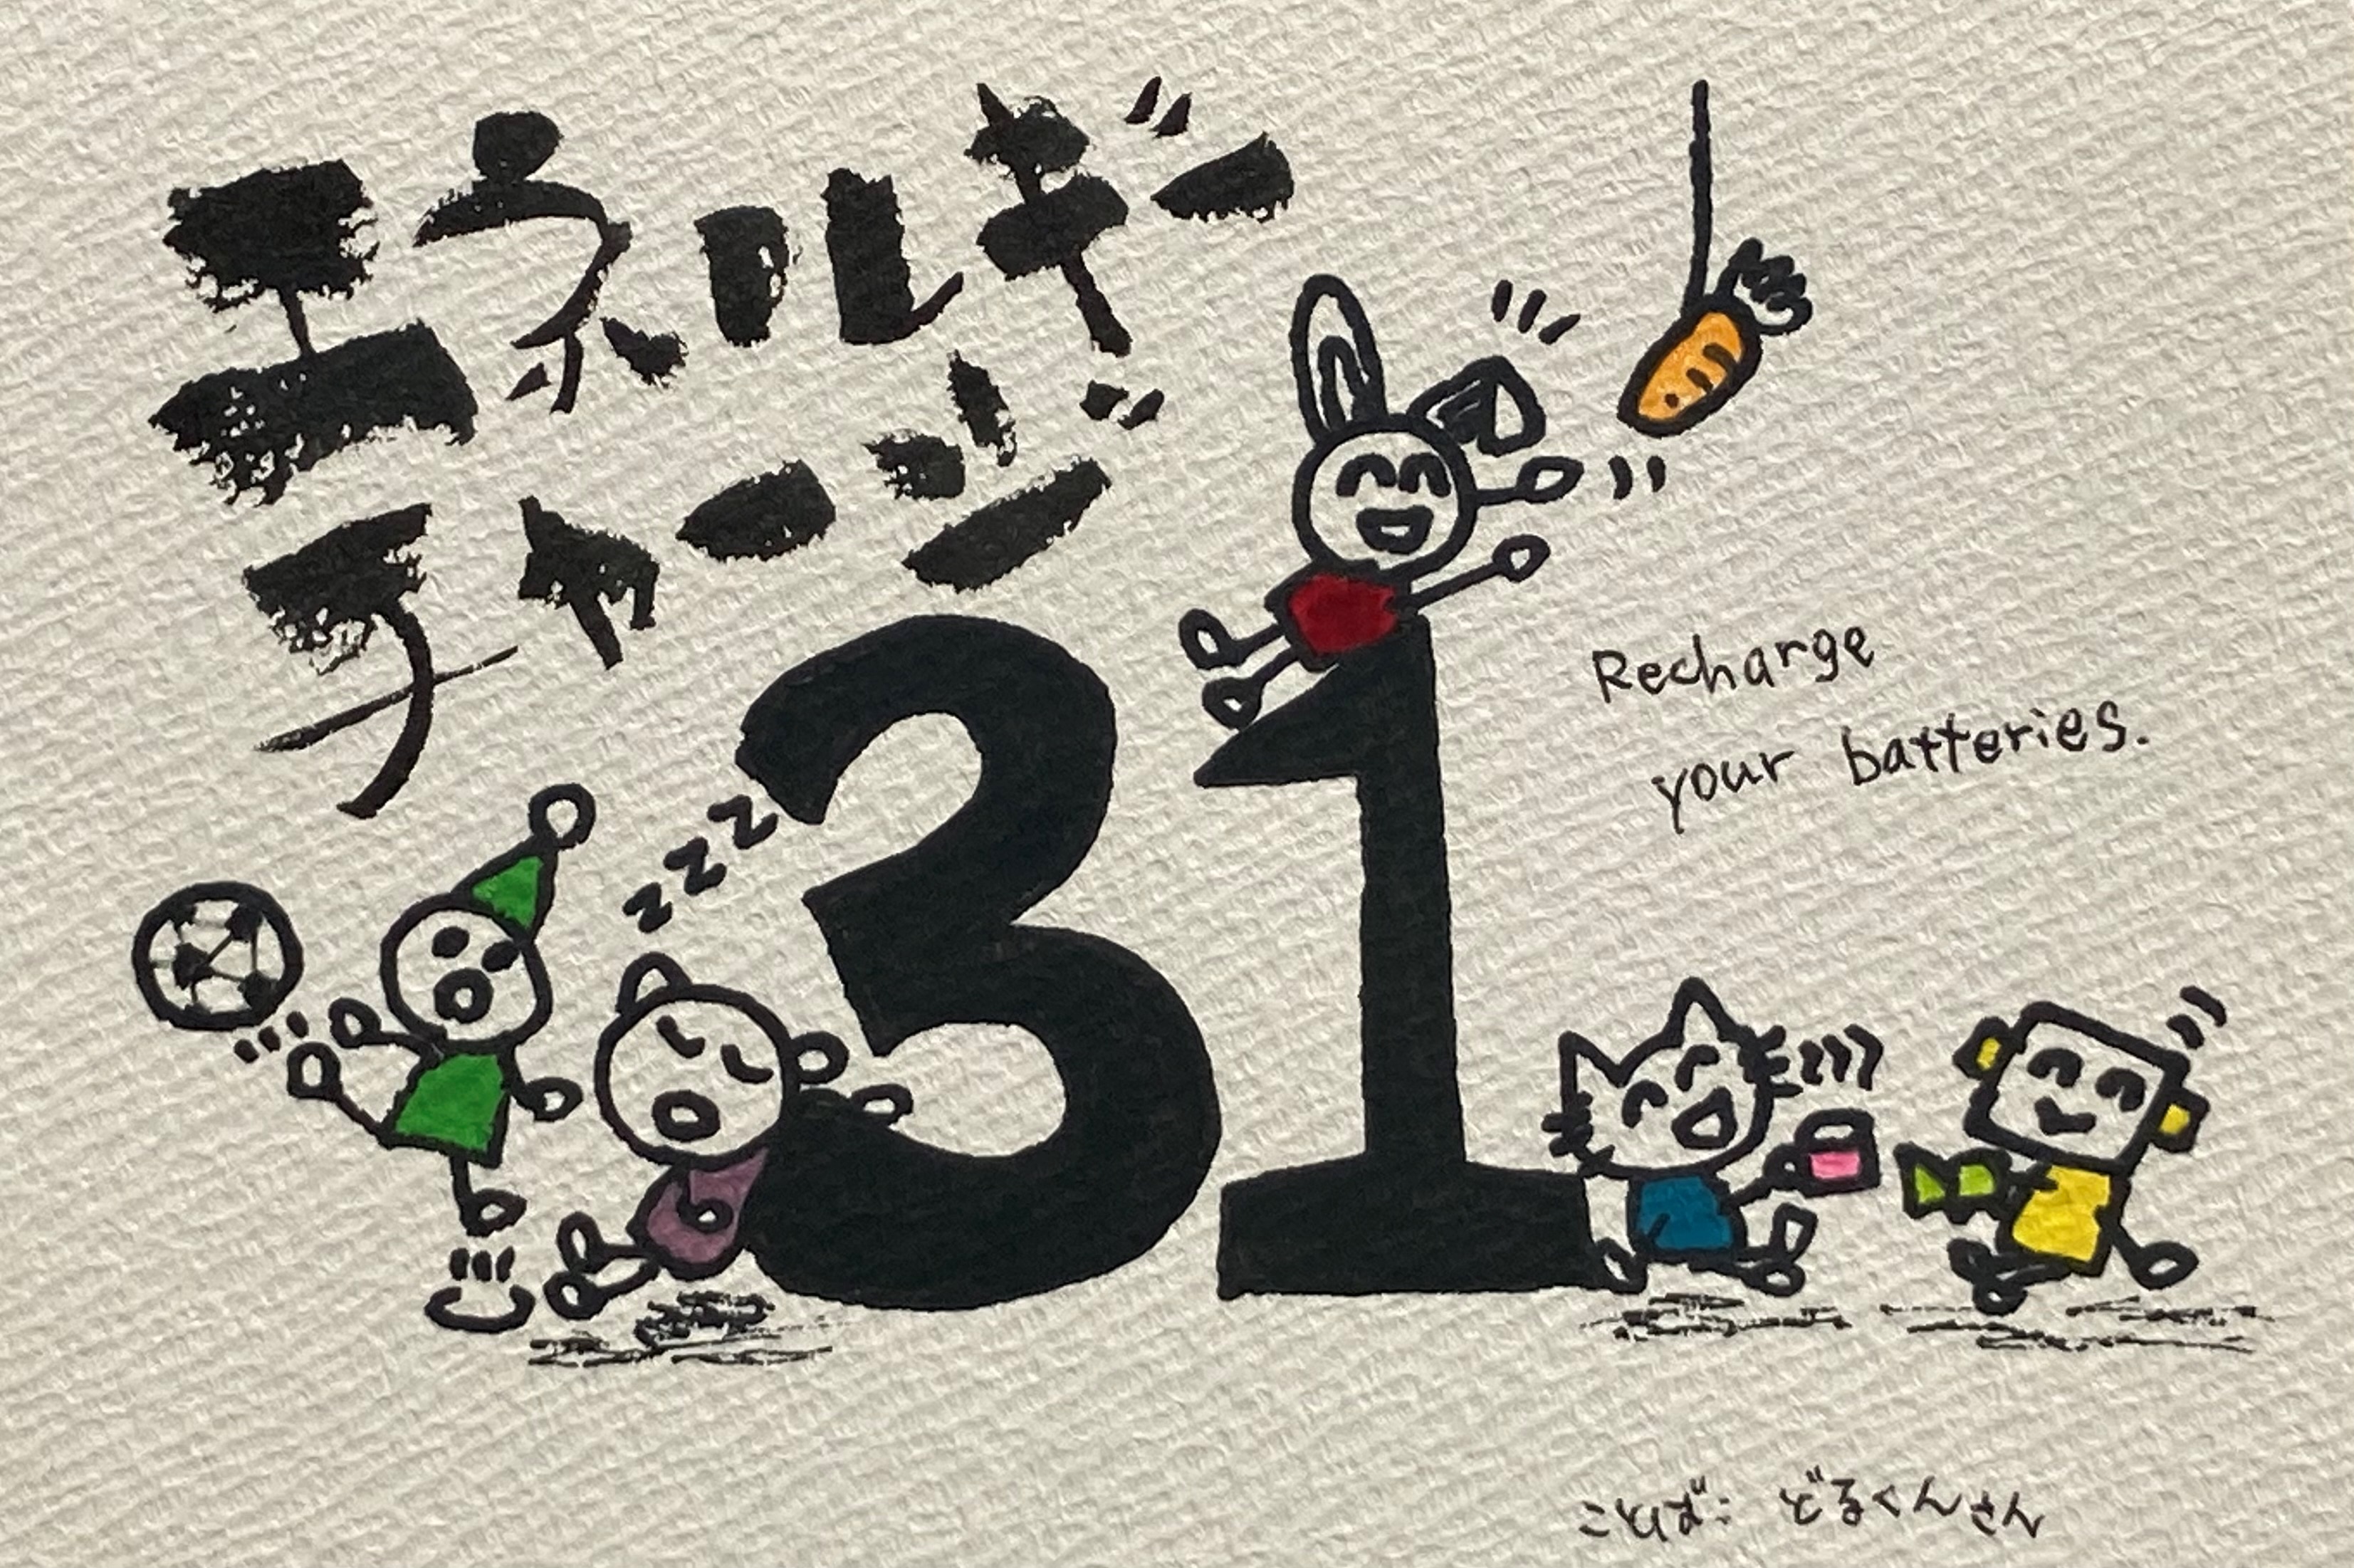 エネルギー
チャージ
zzz
31
Recharge
your batteries.
ことば: どるくんさん